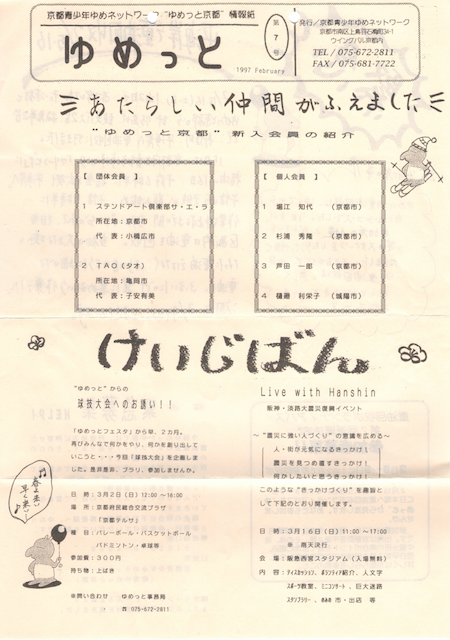 京都青少年ゆめネットワーク "ゆめっと京都" 情報紙
ゆめっと
第7号
1997 February
発行/京都青少年ゆめネットワーク
京都市南区上鳥羽石橋町34-1
ウイングパル京都内
TEL / 075-672-2811
FAX / 075-681-7722
あたらしい仲間がふえました
"ゆめっと京都" 新入会員の紹介
【 団体会員 】
1 ステンドアート倶楽部サ・エ・ラ
所在地:京都市
代 表:小橋広市
2 TAO(タオ)
所在地:亀岡市
代 表:子安有美
【 個人会員 】
1 堀江 知代 (京都市)
2 杉浦 秀隆 (京都市)
3 芦田 一郎 (京都市)
4 樋邉 利栄子 (城陽市)
けいじばん
"ゆめっと" からの
球技大会へのお誘い!!
「ゆめっとフェスタ」から早、2カ月。
再びみんなで何かをやり、何かを創り出して
いこうと・・・今回「球技大会」を企画しま
した。是非是非、ブラリ、参加しませんか。
日 時:3月2日(日)12:00～16:00
場 所:京都府民総合交流プラザ
「京都テルサ」
種 目:バレーボール・バスケットボール
バドミントン・卓球等
参加費:300円
持ち物:上ばき
※問い合わせ ゆめっと事務局
☎ 075-672-2811
春よ来い
早く来い
Live with Hanshin
阪神・淡路大震災復興イベント
～ "震災に強い人づくり" の意識を広める～
人・街が元気になるきっかけ!
震災を見つめ直すきっかけ!
何かしたいと思うきっかけ!
このような "きっかけづくり" を趣旨と
して下記のとおり開催します。
日 時:3月16日(日)11:00～17:00
※ 雨天決行
会 場:阪急西宮スタジアム(入場無料)
内 容:ディスカッション、ボランティア紹介、人文字
スポーツ教室、ミニコンサート、巨大迷路
スタンプラリー、のみの市・出店 等